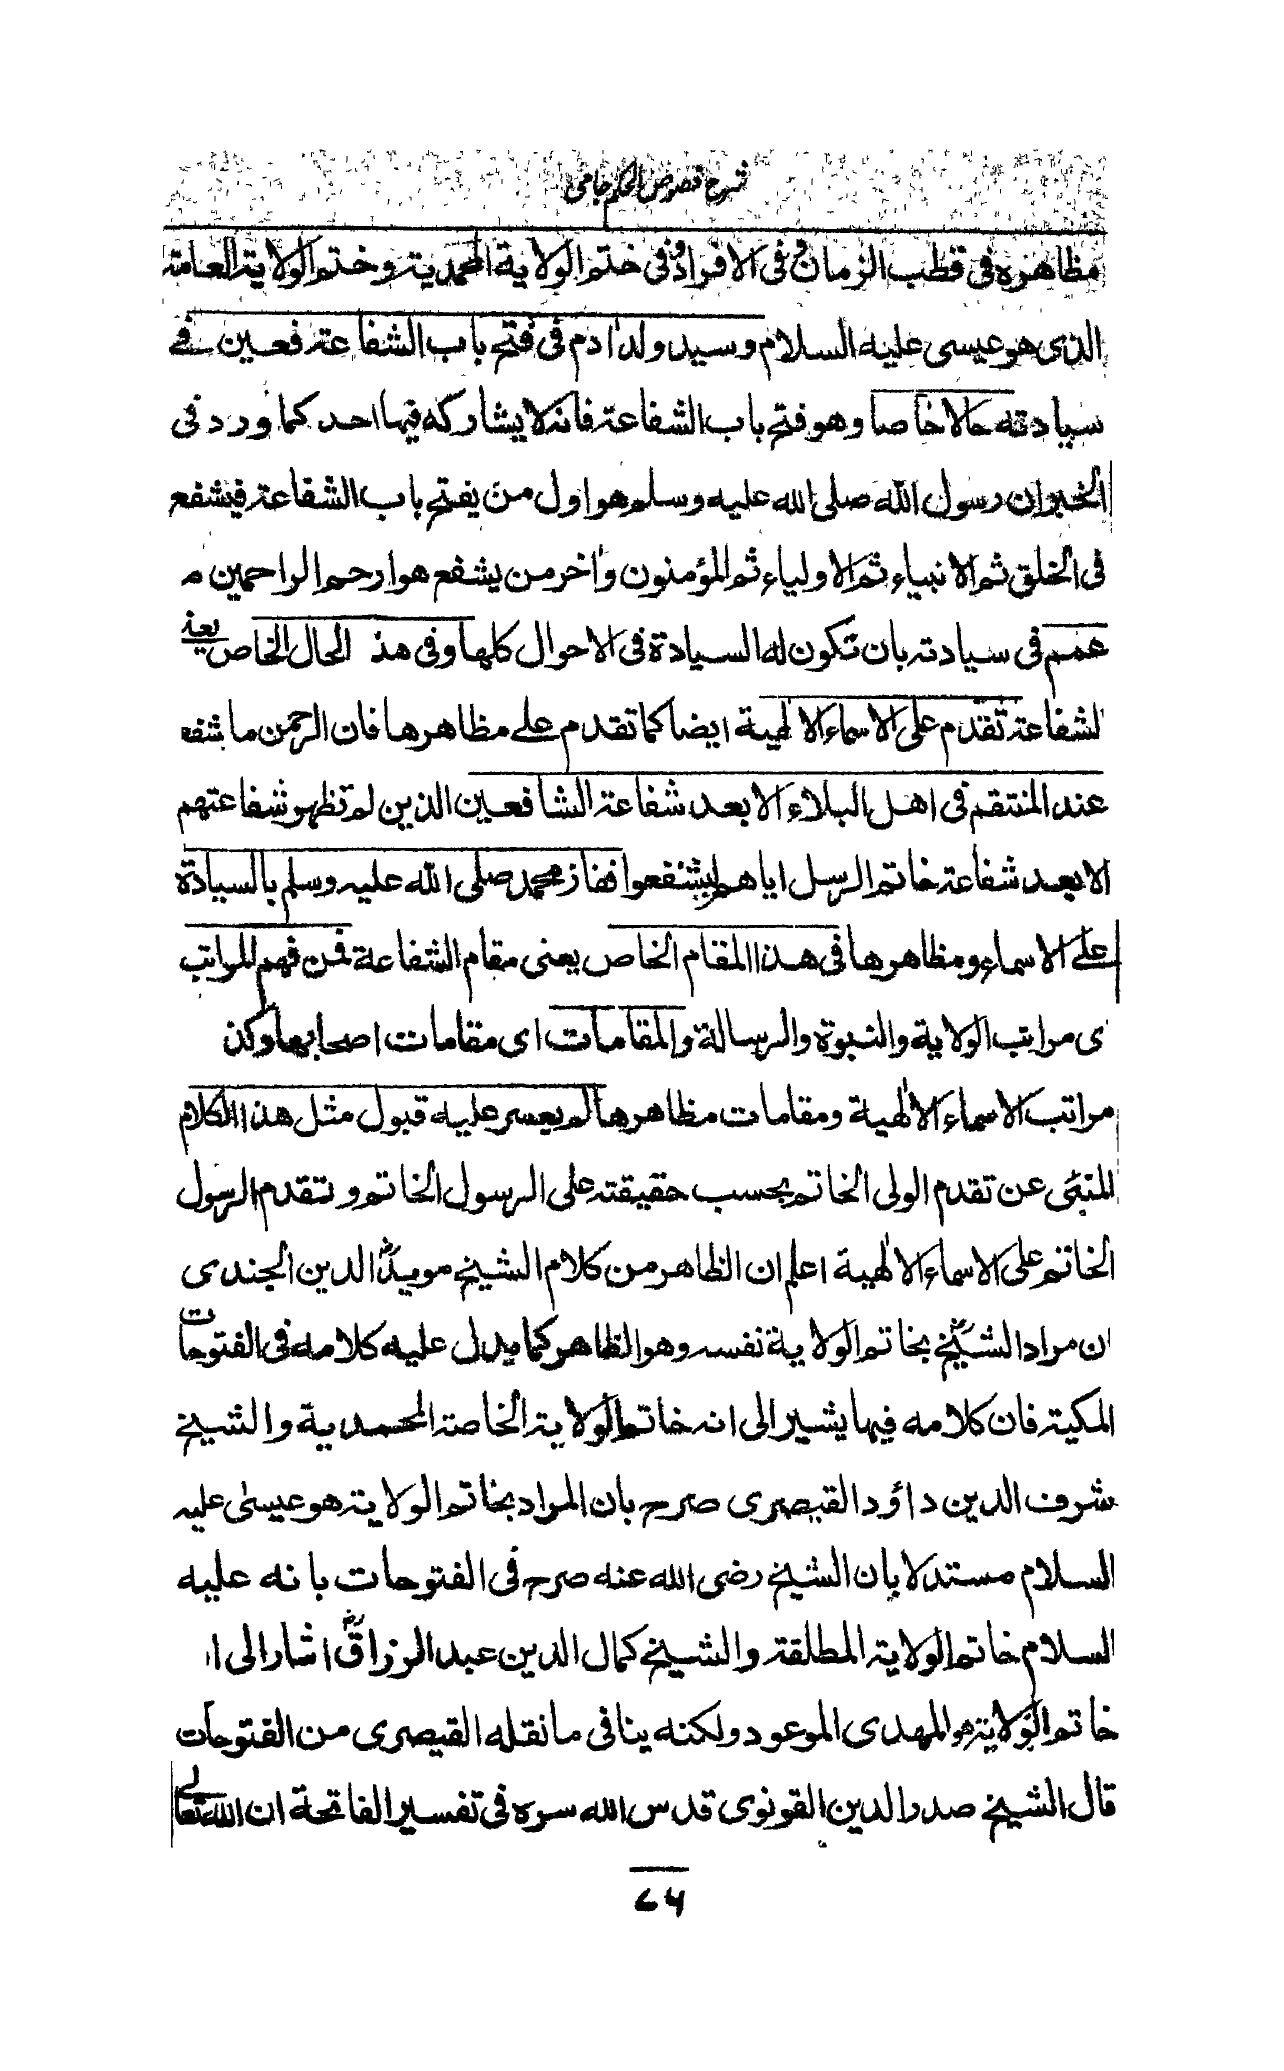 شرح فصوص الحكم جامى
مظاهره فى قطب الزمان وفى الافراد وفى ختم الولاية المحمدية وختم الولاية العامة
الذى هو عيسى عليه السلام وسيد ولد ادم فى فتح باب الشفاعة فعين فى
سيادته حالا خاصا وهو فتح باب الشفاعة فانه لا يشاركه فيها احد كما ورد فى
الخبر ان رسول الله صلى الله عليه وسلم هو اول من يفتح باب الشفاعة فيشفع
فى الخلق ثم الانبياء ثم الاولياء ثم المؤمنون وآخر من يشفع هو ارحم الراحمين م
همم فى سيادته بان تكون له السيادة فى الاحوال كلها وفى هذ الحال الخاص يعنى
لشفاعة تقدم على الاسماء الالهية ايضا كما تقدم على مظاهرها فان الرحمن ما شفع
عند المنتقم فى اهل البلاء الا بعد شفاعة الشافعين الذين لم تظهر شفاعتهم
الا بعد شفاعة خاتم الرسل اياهم ليشفعوا ففاز محمد صلى الله عليه وسلم بالسيادة
على الاسماء ومظاهرها فى هذا المقام الخاص يعنى مقام الشفاعة فمن فهم المراتب
ى مراتب الولاية والنبوة والرسالة والمقامات اى مقامات اصحابها وكذ
مراتب الاسماء الالٰهية ومقامات مظاهرها لم يعسر عليه قبول مثل هذا الكلام
المنبئى عن تقدم الولى الخاتم بحسب حقيقته على الرسول الخاتم و تتقدم الرسول
الخاتم على الاسماء الالٰهية اعلم ان الظاهر من كلام الشيخ مويد الدين الجندى
ان مراد الشيخ بخاتم الولاية نفسه وهو الظاهر كما يدل عليه كلامه فى الفتوحات
المكية فان كلامه فيها يشير الى انه خاتم الولاية الخاصة المحمدية والشيخ
شرف الدين داؤد القيصرى صرح بان المراد بخاتم الولاية هو عيسىٰ عليه
السلام مستدلا بان الشيخ رضى الله عنه صرح فى الفتوحات بانه عليه
السلام خاتم الولاية المطلقة والشيخ كمال الدين عبد الرزاق اشار الى ا
خاتم الولاية هو المهدى الموعود ولكنه ينافى ما نقله القيصرى من الفتوحات
قال الشيخ صدر الدين القونوى قدس الله سره فى تفسير الفاتحة ان الله تعالى
٦٧